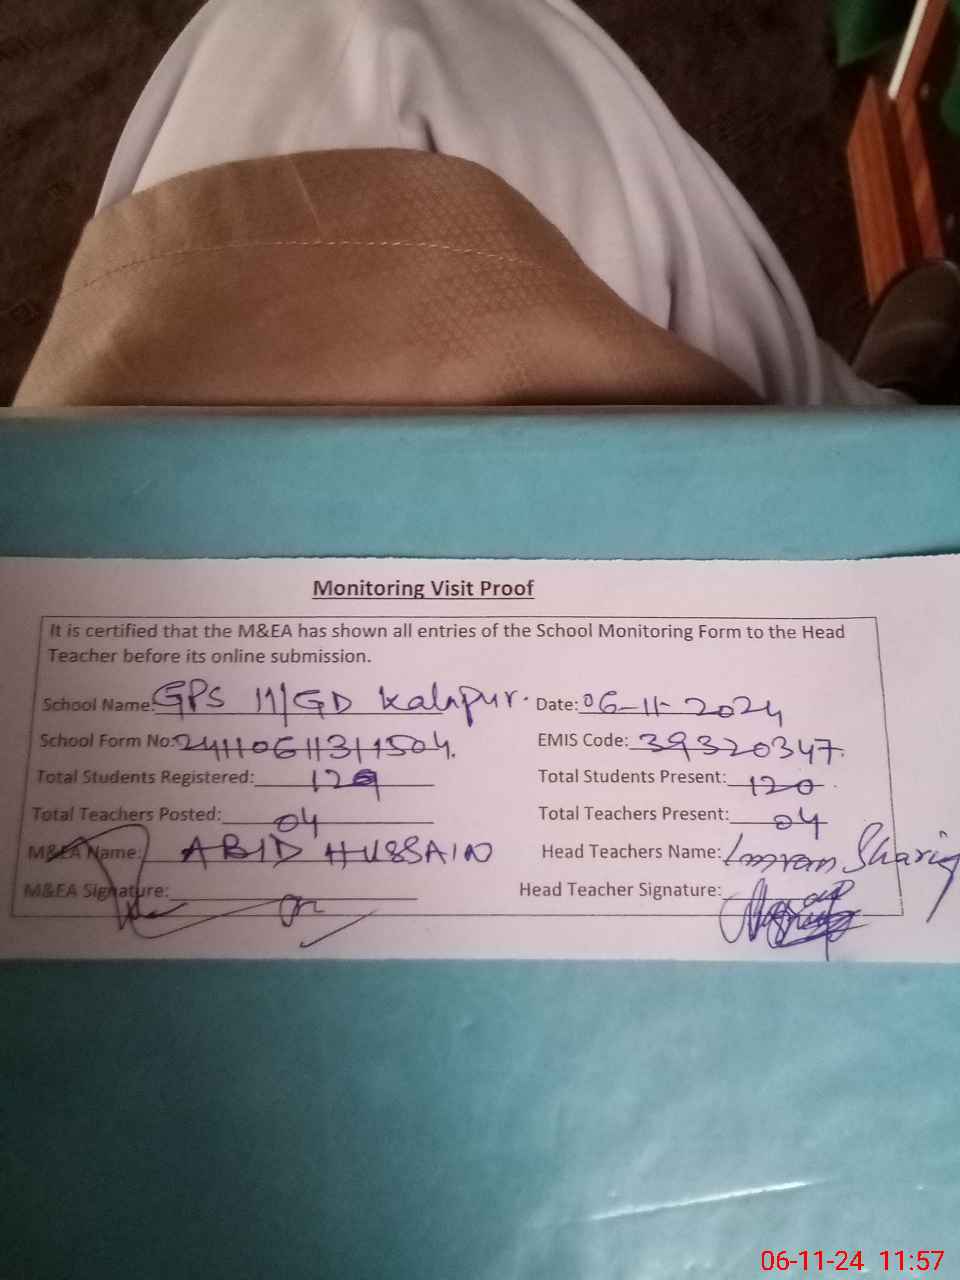 Monitoring Visit Proof
It is certified that the M&EA has shown all entries of the School Monitoring Form to the Head
Teacher before its online submission.
School Name: GPS 11/GD Kalapur. Date: 06-11-2024
School Form No: 241106113411504. EMIS Code: 39320347.
Total Students Registered: 129 Total Students Present: 120
Total Teachers Posted: 04 Total Teachers Present: 04
M&EA Name: ABID HUSSAIN Head Teachers Name: Imran Sharif
M&EA Signature: Head Teacher Signature:
06-11-24 11:57